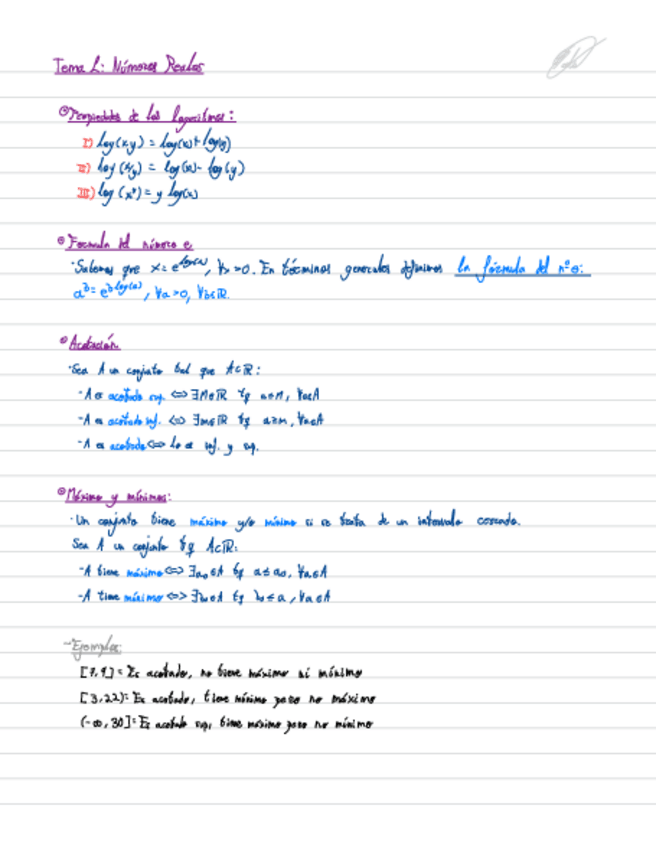 Tema 1: Números Reales
Propiedades de los logaritmos:
I) log(x·y) = log(x)+log(y)
II) log(x/y) = log(x)-log(y)
III) log(xʸ) = y log(x)
Fórmula del número e
·Sabemos que x = e^log(x), ∀x>0. En términos generales definimos la fórmula del nº e:
a^b = e^b·log(a), ∀a>0, ∀b∈ℝ.
Acotación
·Sea A un conjunto tal que A⊂ℝ:
-A es acotado sup. ⇔ ∃M∈ℝ tq a≤M, ∀a∈A
-A es acotado inf. ⇔ ∃m∈ℝ tq a≥m, ∀a∈A
-A es acotado ⇔ lo es inf. y sup.
Máximo y mínimos:
·Un conjunto tiene máximo y/o mínimo si se trata de un intervalo cerrado.
Sea A un conjunto tq A⊂ℝ:
-A tiene máximo ⇔ ∃a₀∈A tq a≤a₀, ∀a∈A
-A tiene mínimo ⇔ ∃b₀∈A tq b₀≤a, ∀a∈A
-Ejemplos:
: Es acotado, no tiene máximo ni mínimo
[3,22): Es acotado, tiene mínimo pero no máximo
(-∞, 30]: Es acotado sup, tiene máximo pero no mínimo